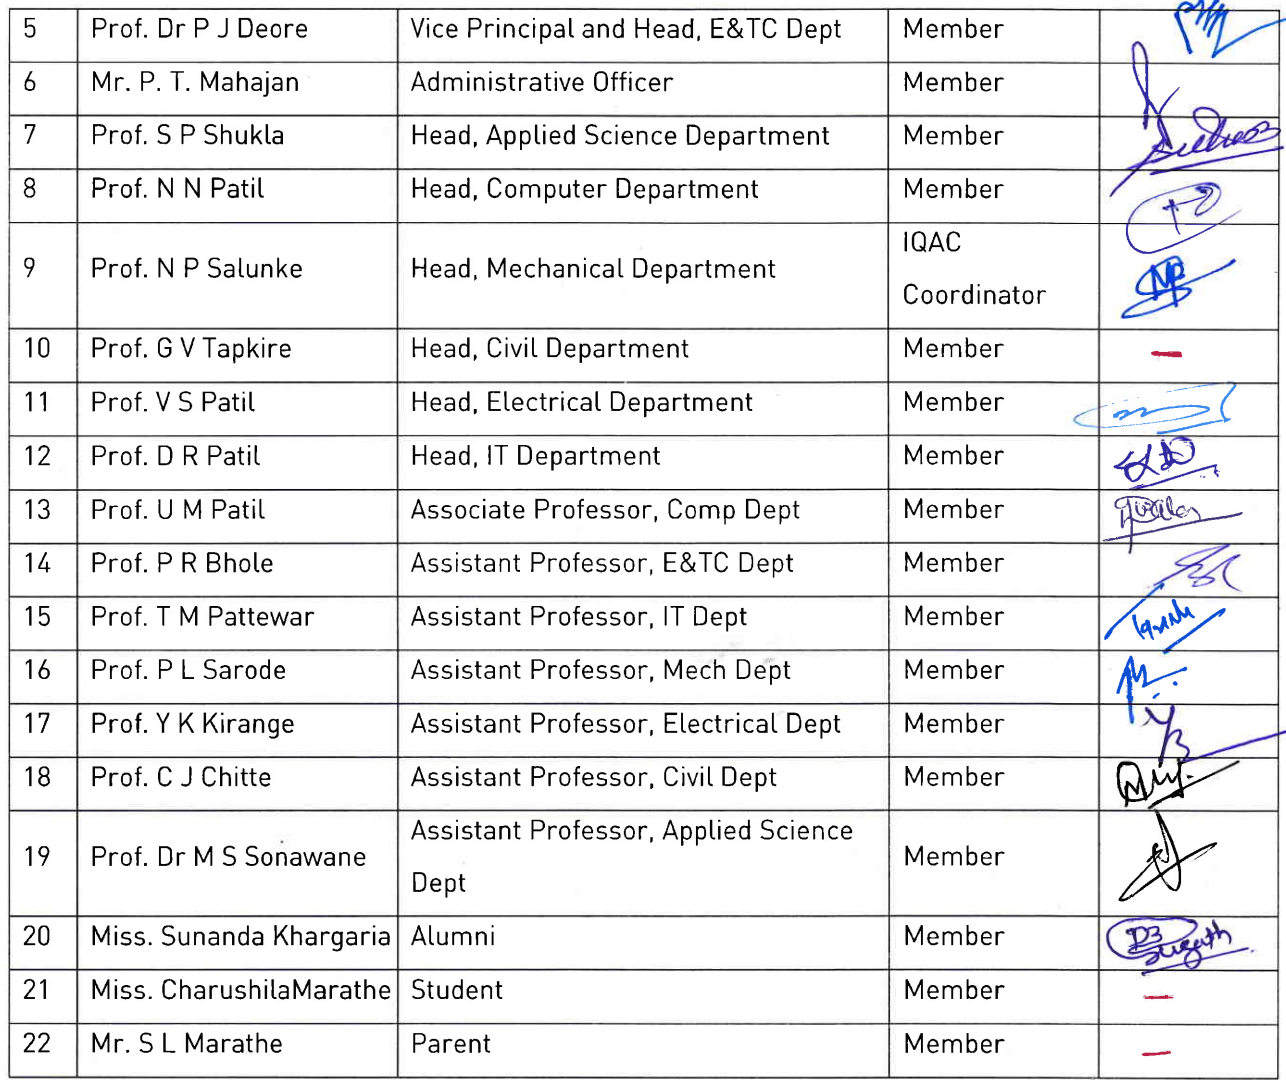 5 Prof. Dr P J Deore Vice Principal and Head, E&TC Dept Member
6 Mr. P. T. Mahajan Administrative Officer Member
7 Prof. S P Shukla Head, Applied Science Department Member
8 Prof. N N Patil Head, Computer Department Member
9 Prof. N P Salunke Head, Mechanical Department IQAC
Coordinator
10 Prof. G V Tapkire Head, Civil Department Member –
11 Prof. V S Patil Head, Electrical Department Member
12 Prof. D R Patil Head, IT Department Member
13 Prof. U M Patil Associate Professor, Comp Dept Member
14 Prof. P R Bhole Assistant Professor, E&TC Dept Member
15 Prof. T M Pattewar Assistant Professor, IT Dept Member
16 Prof. P L Sarode Assistant Professor, Mech Dept Member
17 Prof. Y K Kirange Assistant Professor, Electrical Dept Member
18 Prof. C J Chitte Assistant Professor, Civil Dept Member
19 Prof. Dr M S Sonawane Assistant Professor, Applied Science
Dept Member
20 Miss. Sunanda Khargaria Alumni Member
21 Miss. CharushilaMarathe Student Member –
22 Mr. S L Marathe Parent Member –